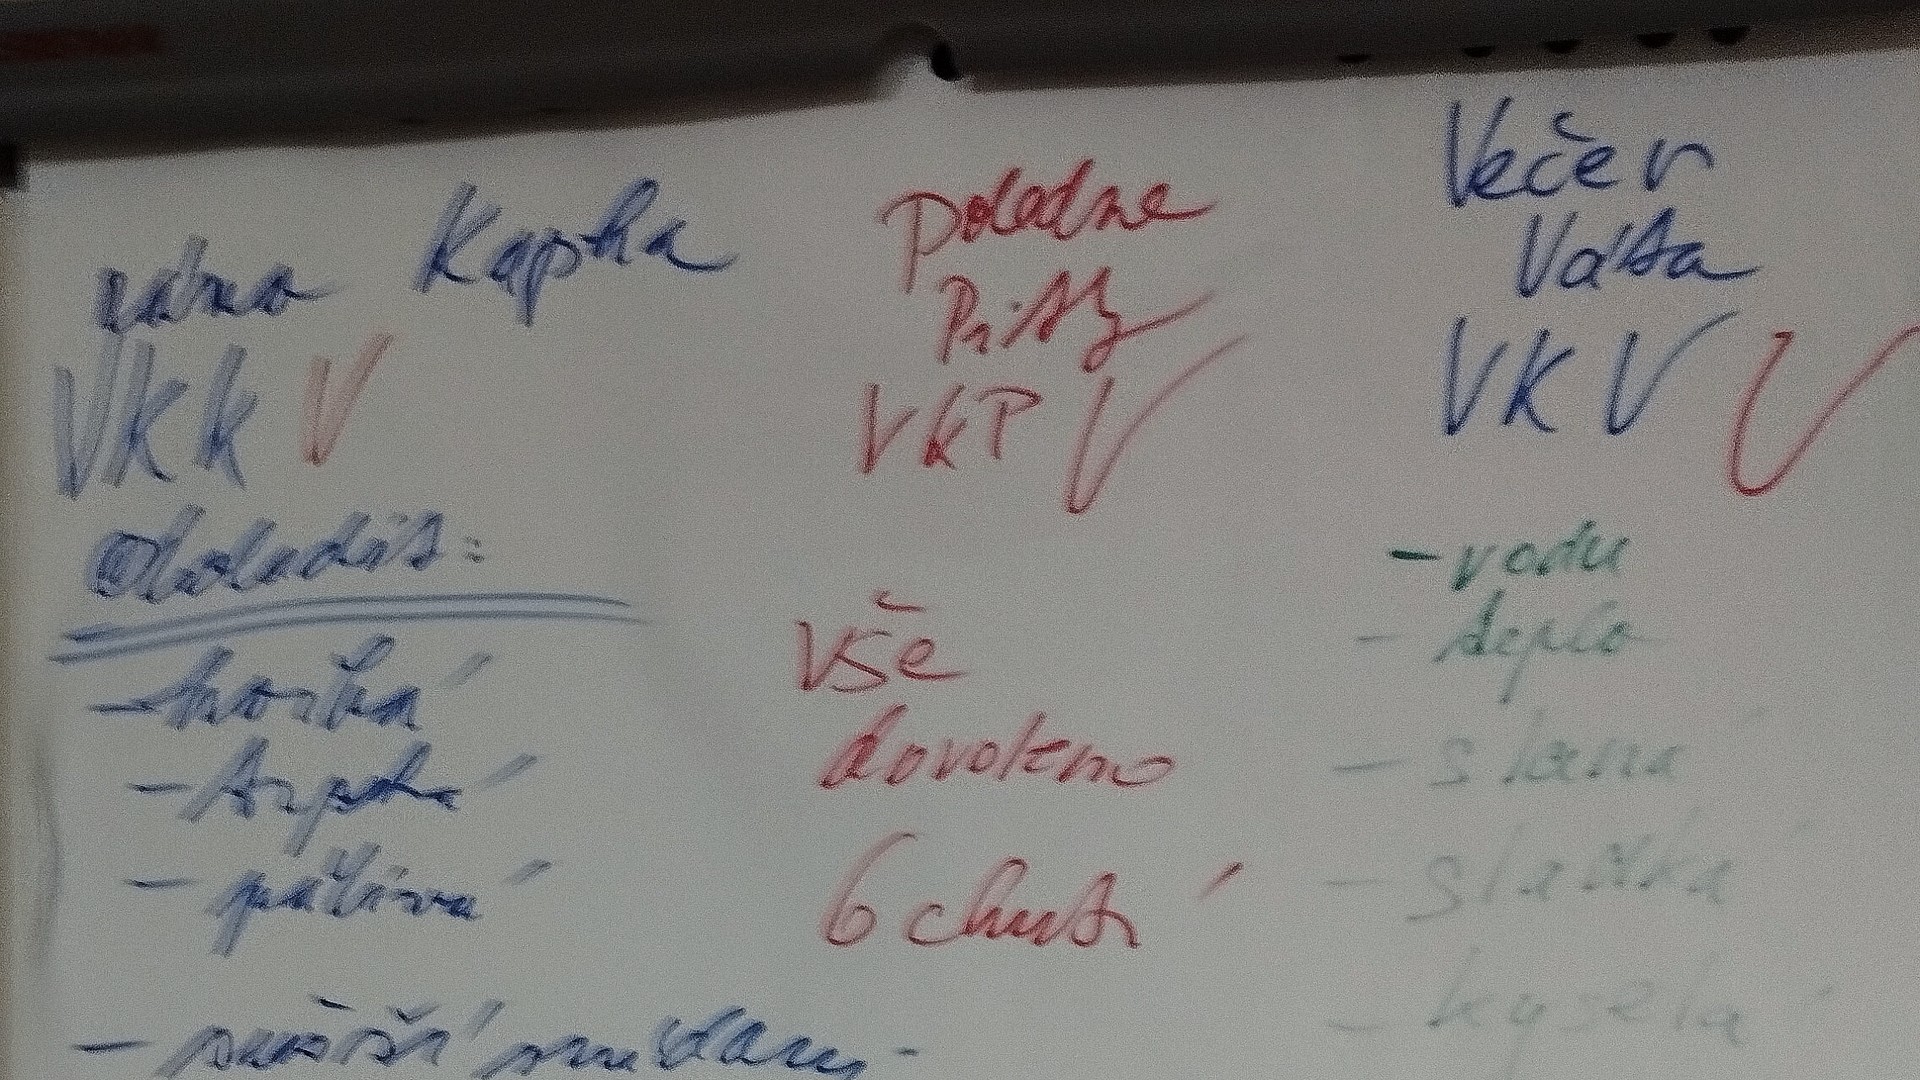 ráno Kapha
VKK V
- hořká
- trpká
- pálivá
Poledne
Pitty
VKP V
vše
dovoleno
6 chutí
Večer
Vata
VKV V
- vodu
- teplo
- slaná
- sladká
- kyselá